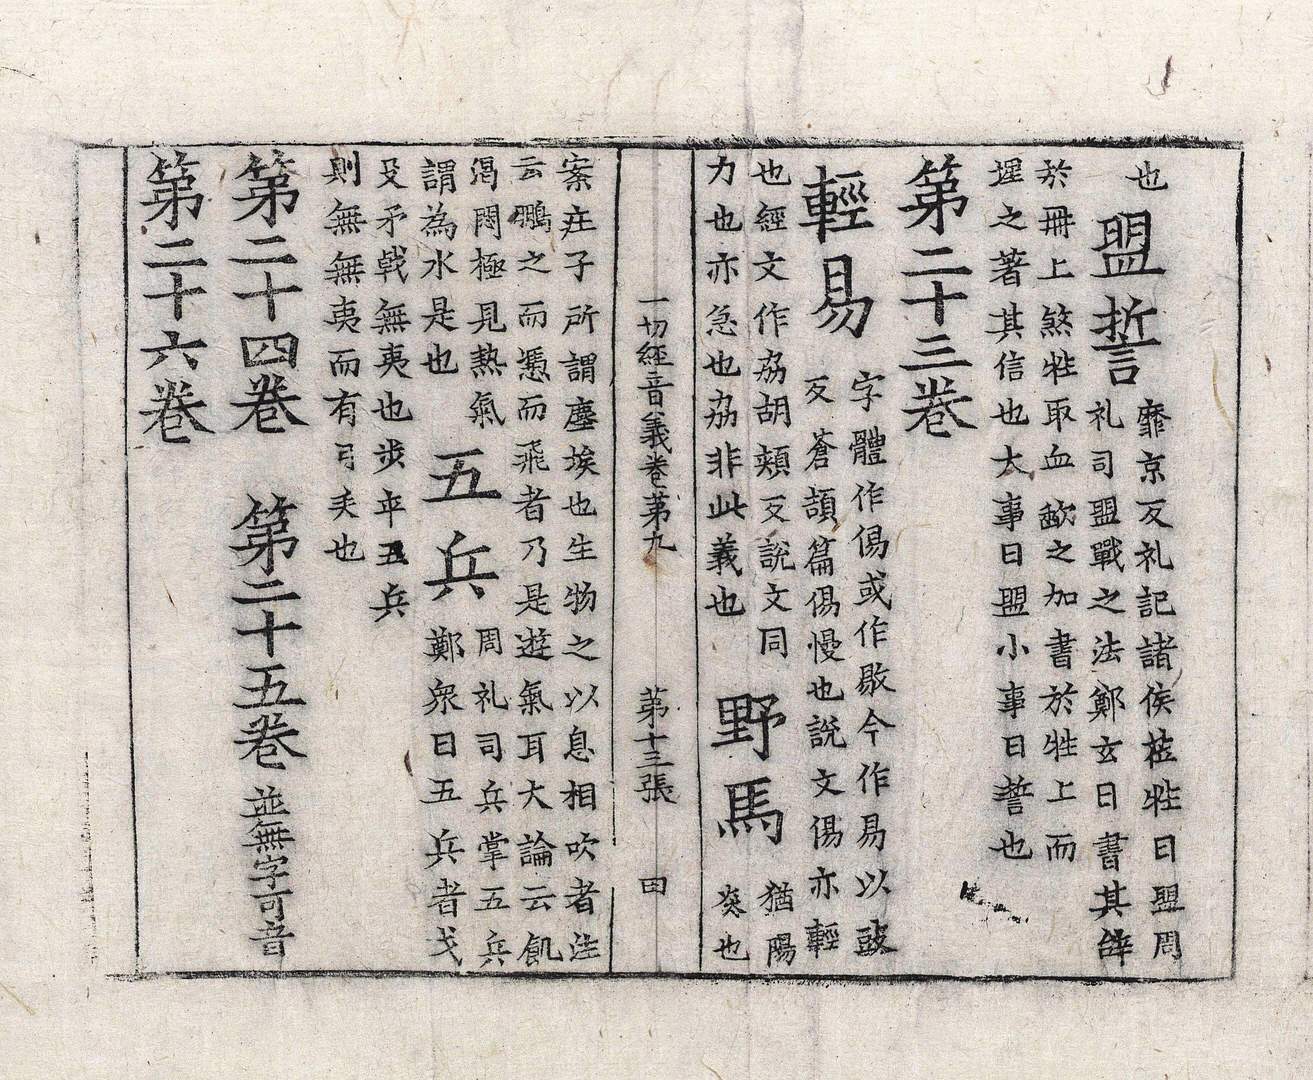 也 盟誓 靡京反礼記諸侯莅牲曰盟周
礼司盟戰之法鄭玄曰書其辝
於冊上煞牲取血歃之加書於牲上而
埋之著其信也大事曰盟小事曰誓也
第二十三卷
輕易 字體作傷或作敭今作易以豉
反蒼頡篇傷慢也說文傷亦輕
也經文作劦胡頰反說文同
力也亦急也劦非此義也 野馬 猶陽
焱也
一切經音義卷第九 第十三張 田
案庄子所謂塵埃也生物之以息相吹者注
云鵬之而憑而飛者乃是遊氣耳大論云飢
渴悶極見熱氣
謂為水是也 五兵 周礼司兵掌五兵
鄭眾曰五兵者戈
殳矛戟無夷也步卒五兵
則無無夷而有弓矢也
第二十四卷 第二十五卷 並無字可音
第二十六卷